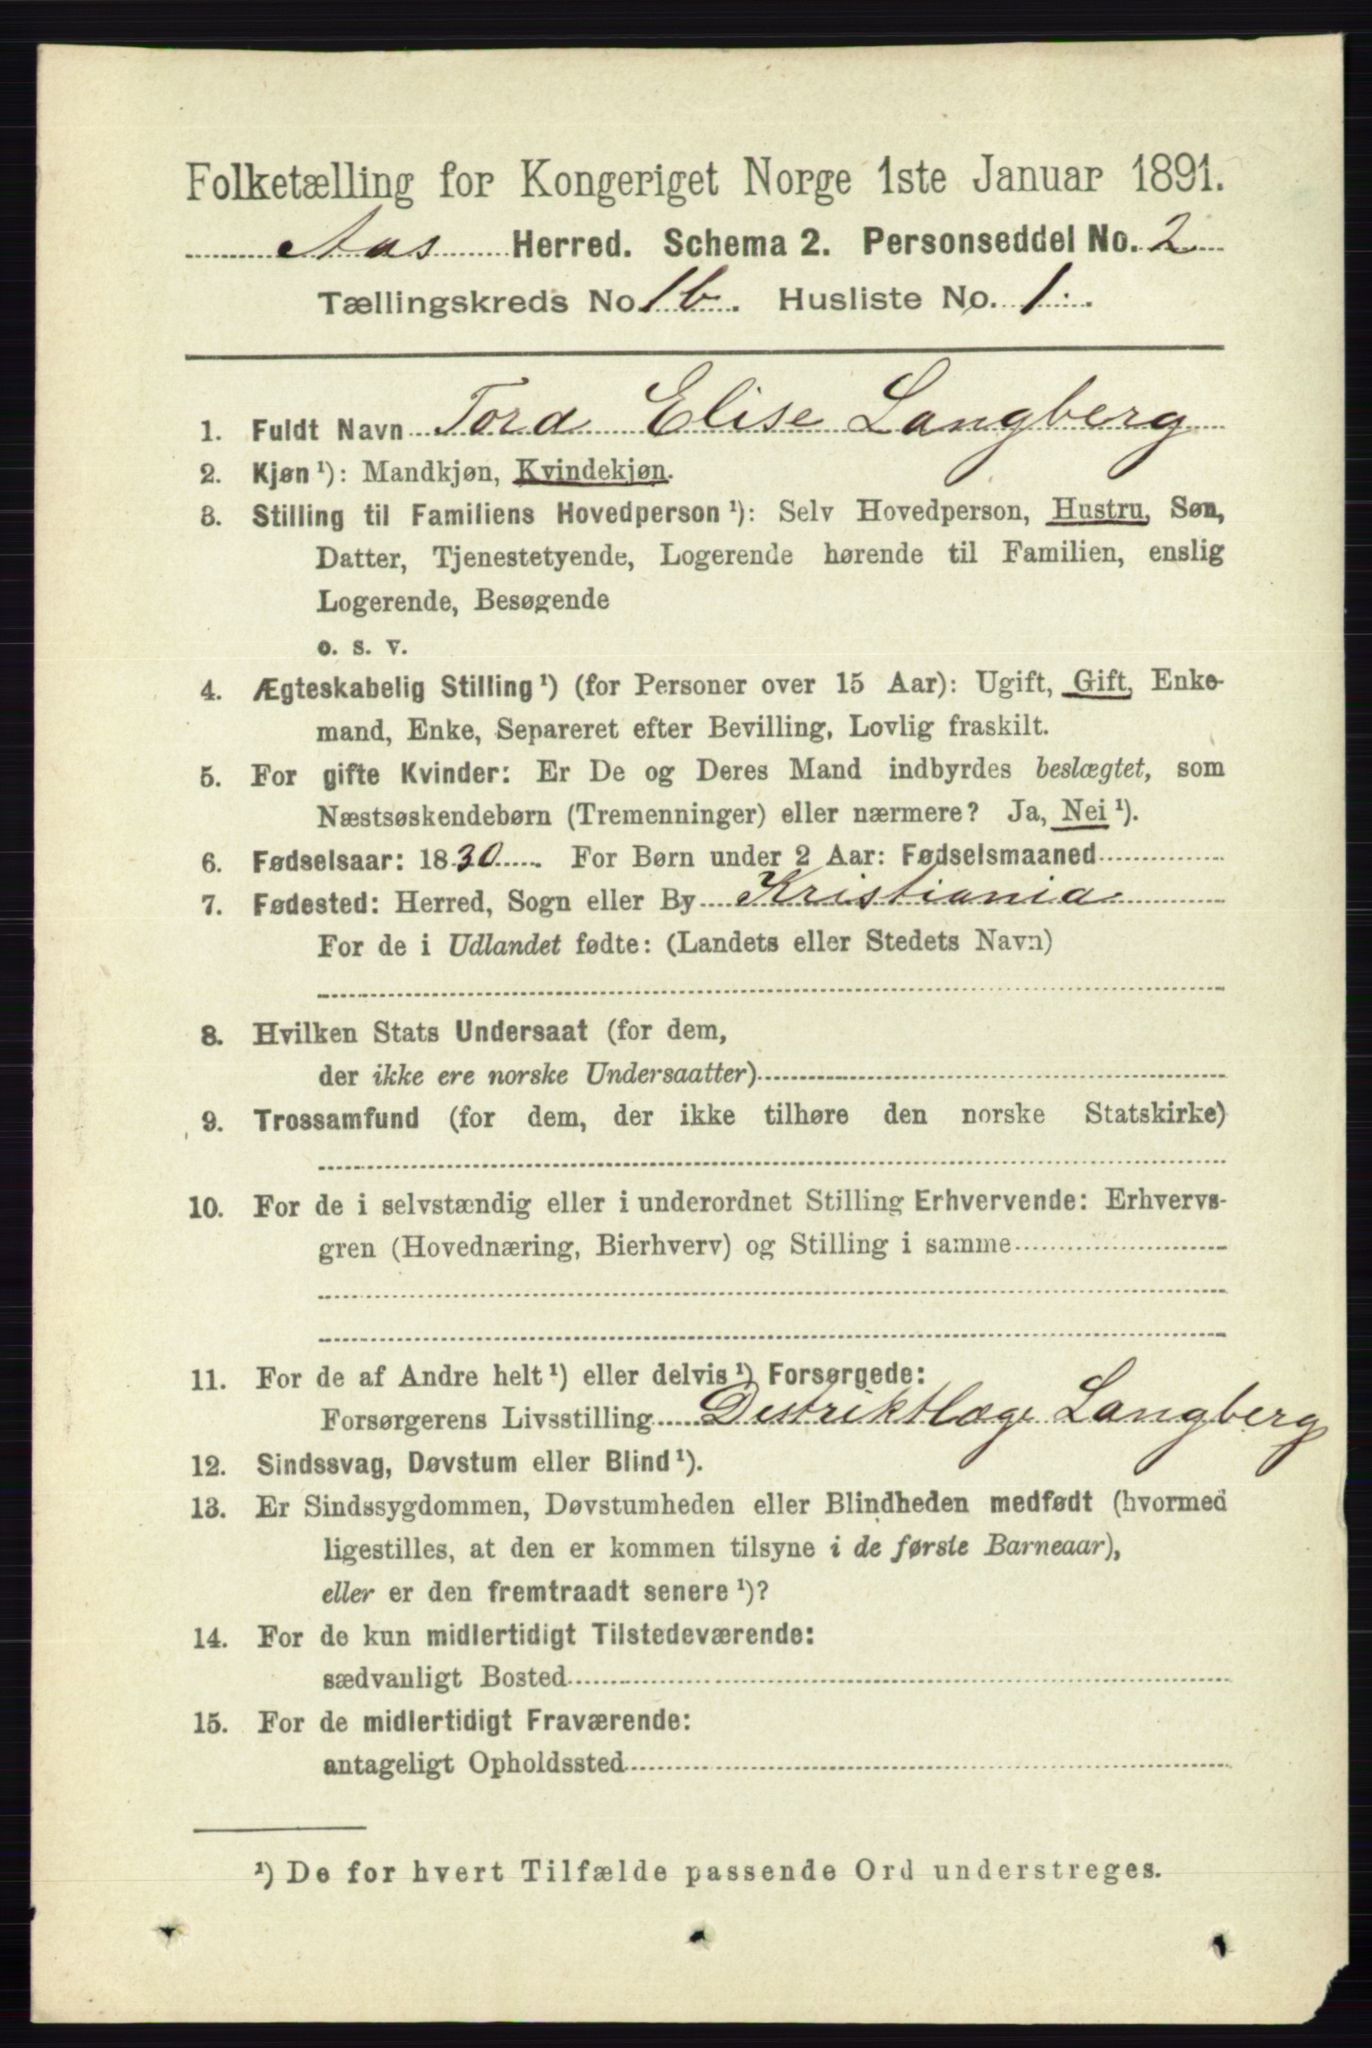 Folketælling for Kongeriget Norge 1ste Januar 1891.
Aas Herred. Schema 2. Personseddel No. 2
Tællingskreds No. 1b. Husliste No. 1.
1. Fuldt Navn Tora Elise Langberg
2. Kjøn ¹): Mandkjøn, Kvindekjøn.
3. Stilling til Familiens Hovedperson ¹): Selv Hovedperson, Hustru, Søn,
Datter, Tjenestetyende, Logerende hørende til Familien, enslig
Logerende, Besøgende
o. s. v.
4. Ægteskabelig Stilling ¹) (for Personer over 15 Aar): Ugift, Gift, Enke-
mand, Enke, Separeret efter Bevilling, Lovlig fraskilt.
5. For gifte Kvinder: Er De og Deres Mand indbyrdes beslægtet, som
Næstsøskendebørn (Tremenninger) eller nærmere? Ja, Nei ¹).
6. Fødselsaar: 1830. For Børn under 2 Aar: Fødselsmaaned
7. Fødested: Herred, Sogn eller By Kristiania
For de i Udlandet fødte: (Landets eller Stedets Navn)
8. Hvilken Stats Undersaat (for dem,
der ikke ere norske Undersaatter)
9. Trossamfund (for dem, der ikke tilhøre den norske Statskirke)
10. For de i selvstændig eller i underordnet Stilling Erhvervende: Erhvervs-
gren (Hovednæring, Bierhverv) og Stilling i samme
11. For de af Andre helt ¹) eller delvis ¹) Forsørgede:
Forsørgerens Livsstilling Distriktlæge Langberg
12. Sindssvag, Døvstum eller Blind ¹).
13. Er Sindssygdommen, Døvstumheden eller Blindheden medfødt (hvormed
ligestilles, at den er kommen tilsyne i de første Barneaar),
eller er den fremtraadt senere ¹)?
14. For de kun midlertidigt Tilstedeværende:
sædvanligt Bosted
15. For de midlertidigt Fraværende:
antageligt Opholdssted
¹) De for hvert Tilfælde passende Ord understreges.